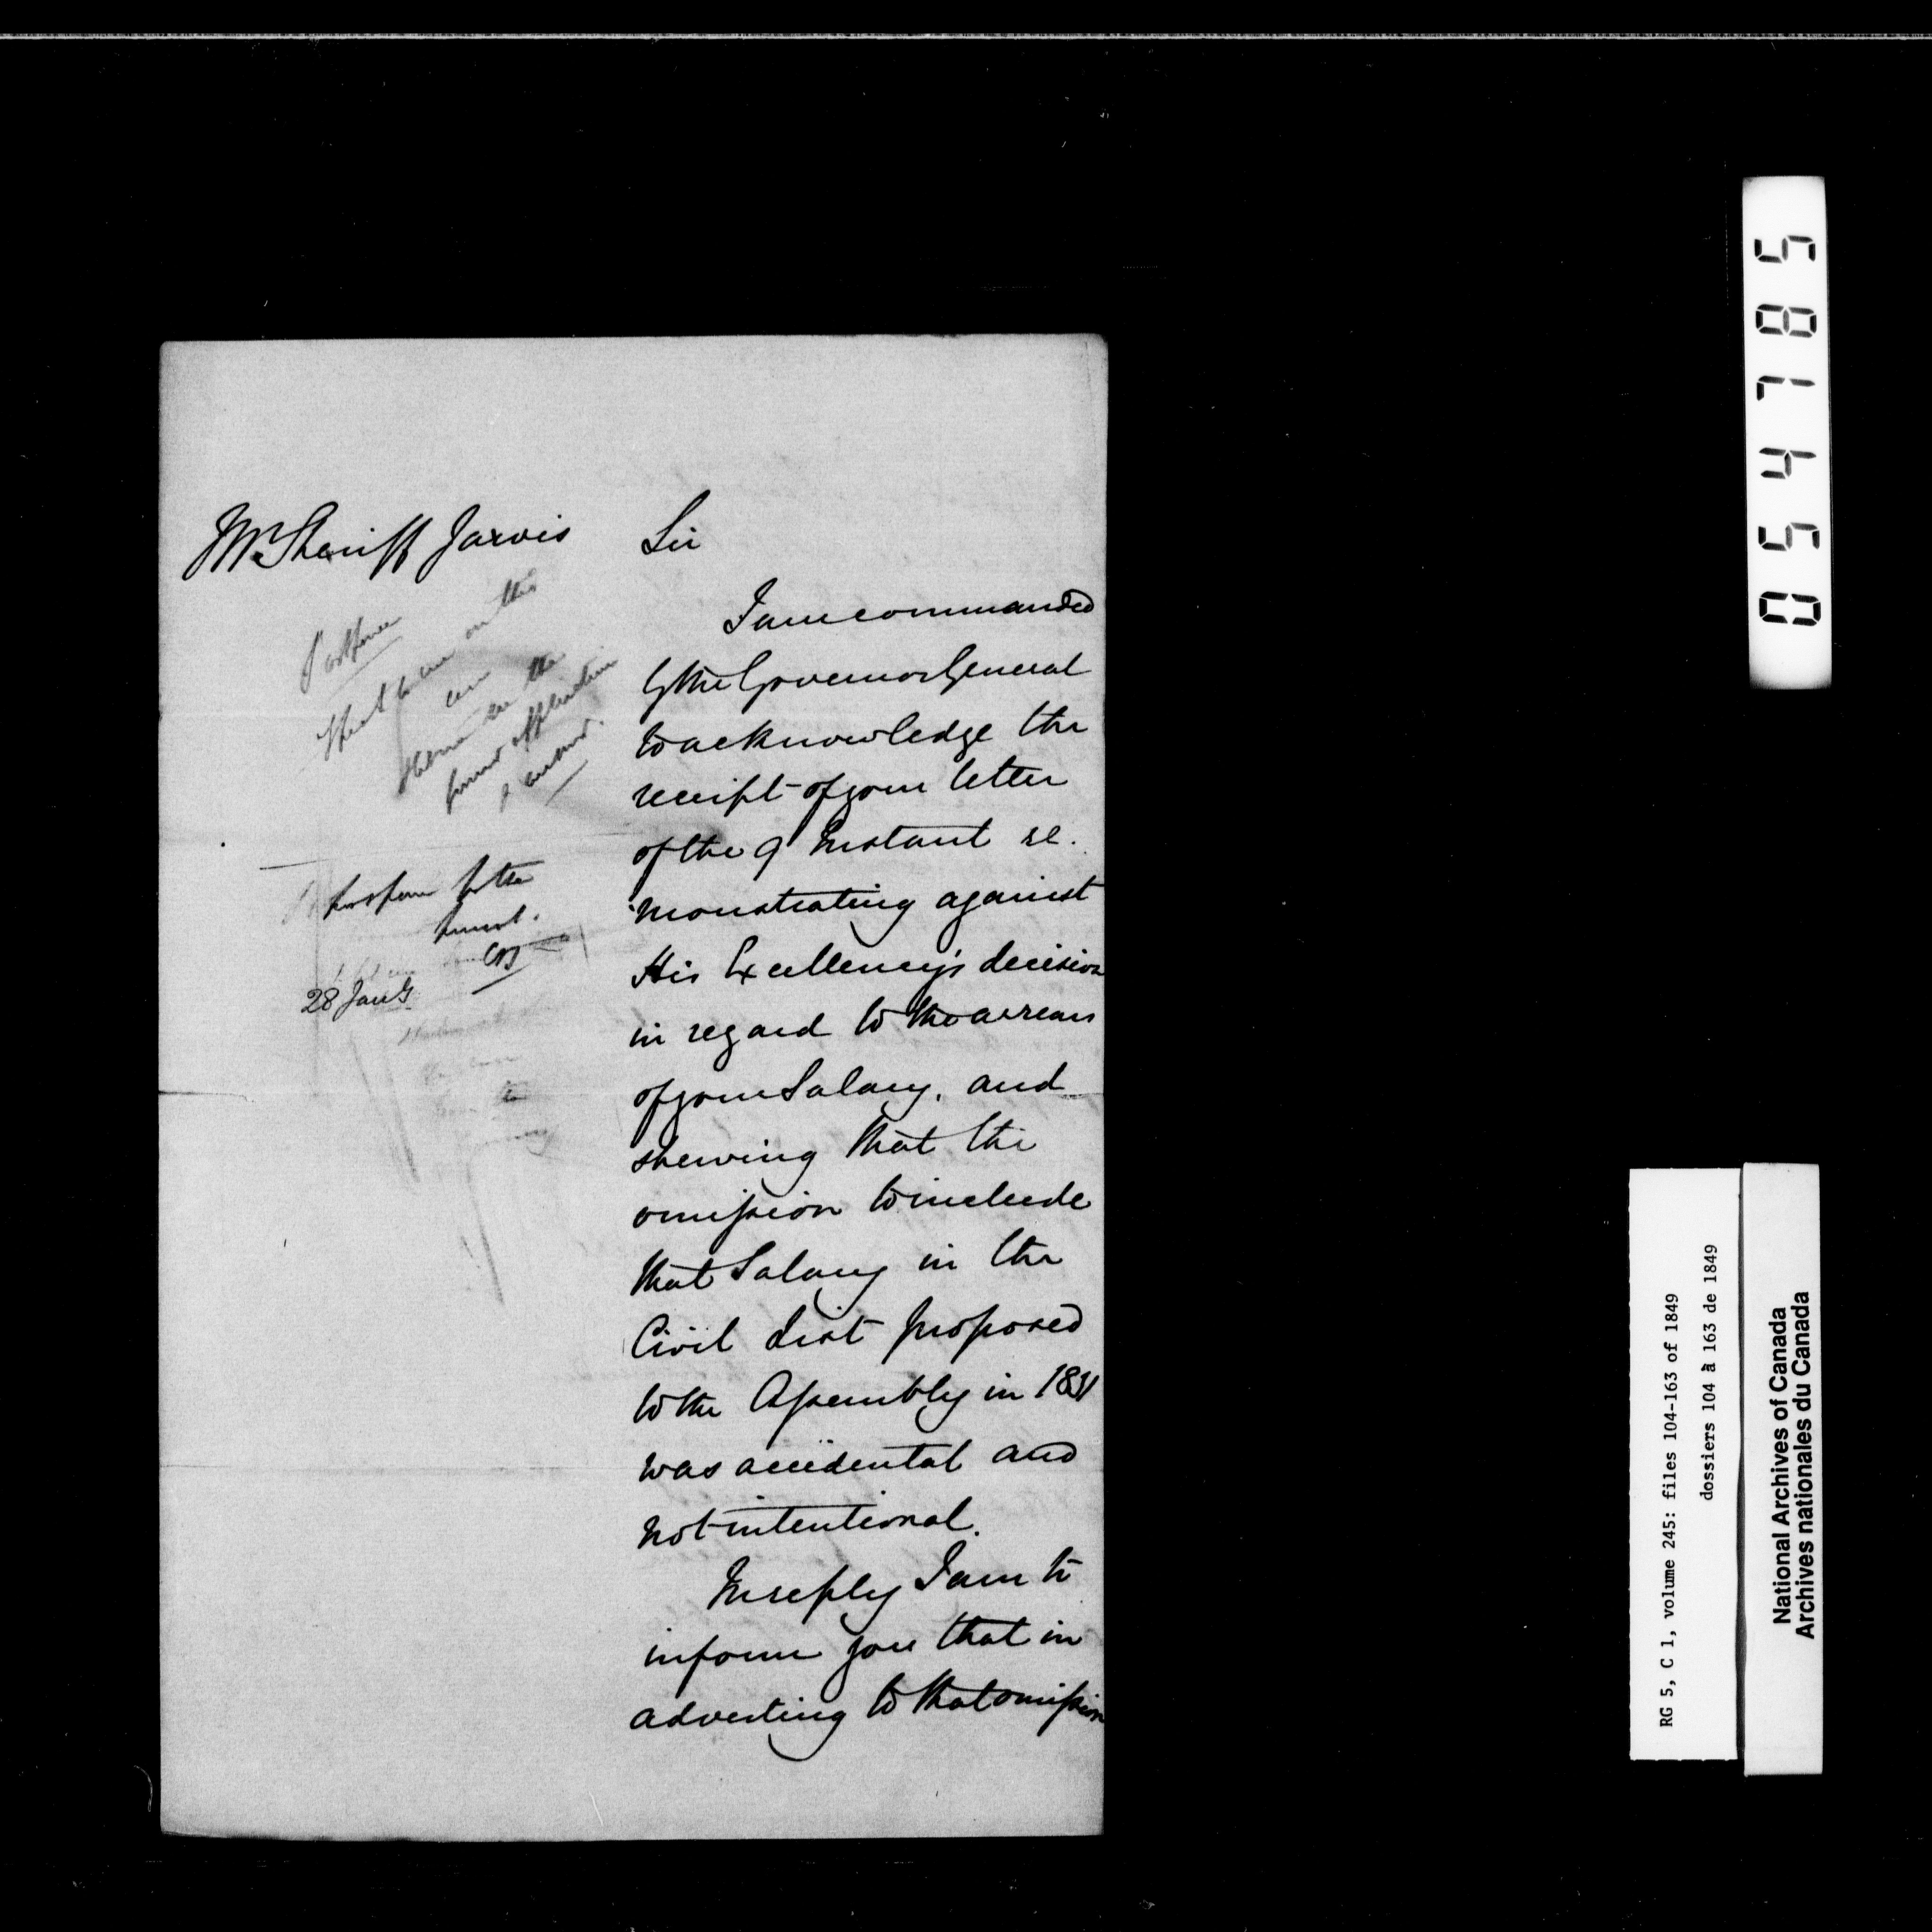 Mr Sheriff Jarvis
Sir
I am commanded
by the Governor General
to acknowledge the
receipt of your letter
of the 9 Instant re-
monstrating against
His Excellency's decision
in regard to the arrears
of your Salary, and
shewing that the
omission to include
that Salary in the
Civil List proposed
to the Assembly in 1831
was accidental and
not intentional.
In reply I am to
inform you that in
adverting to that omission
Postpone
on this
the
postpone for the
present.
28 Jany
054785
RG 5, C 1, volume 245: files 104-163 of 1849
dossiers 104 à 163 de 1849
National Archives of Canada
Archives nationales du Canada